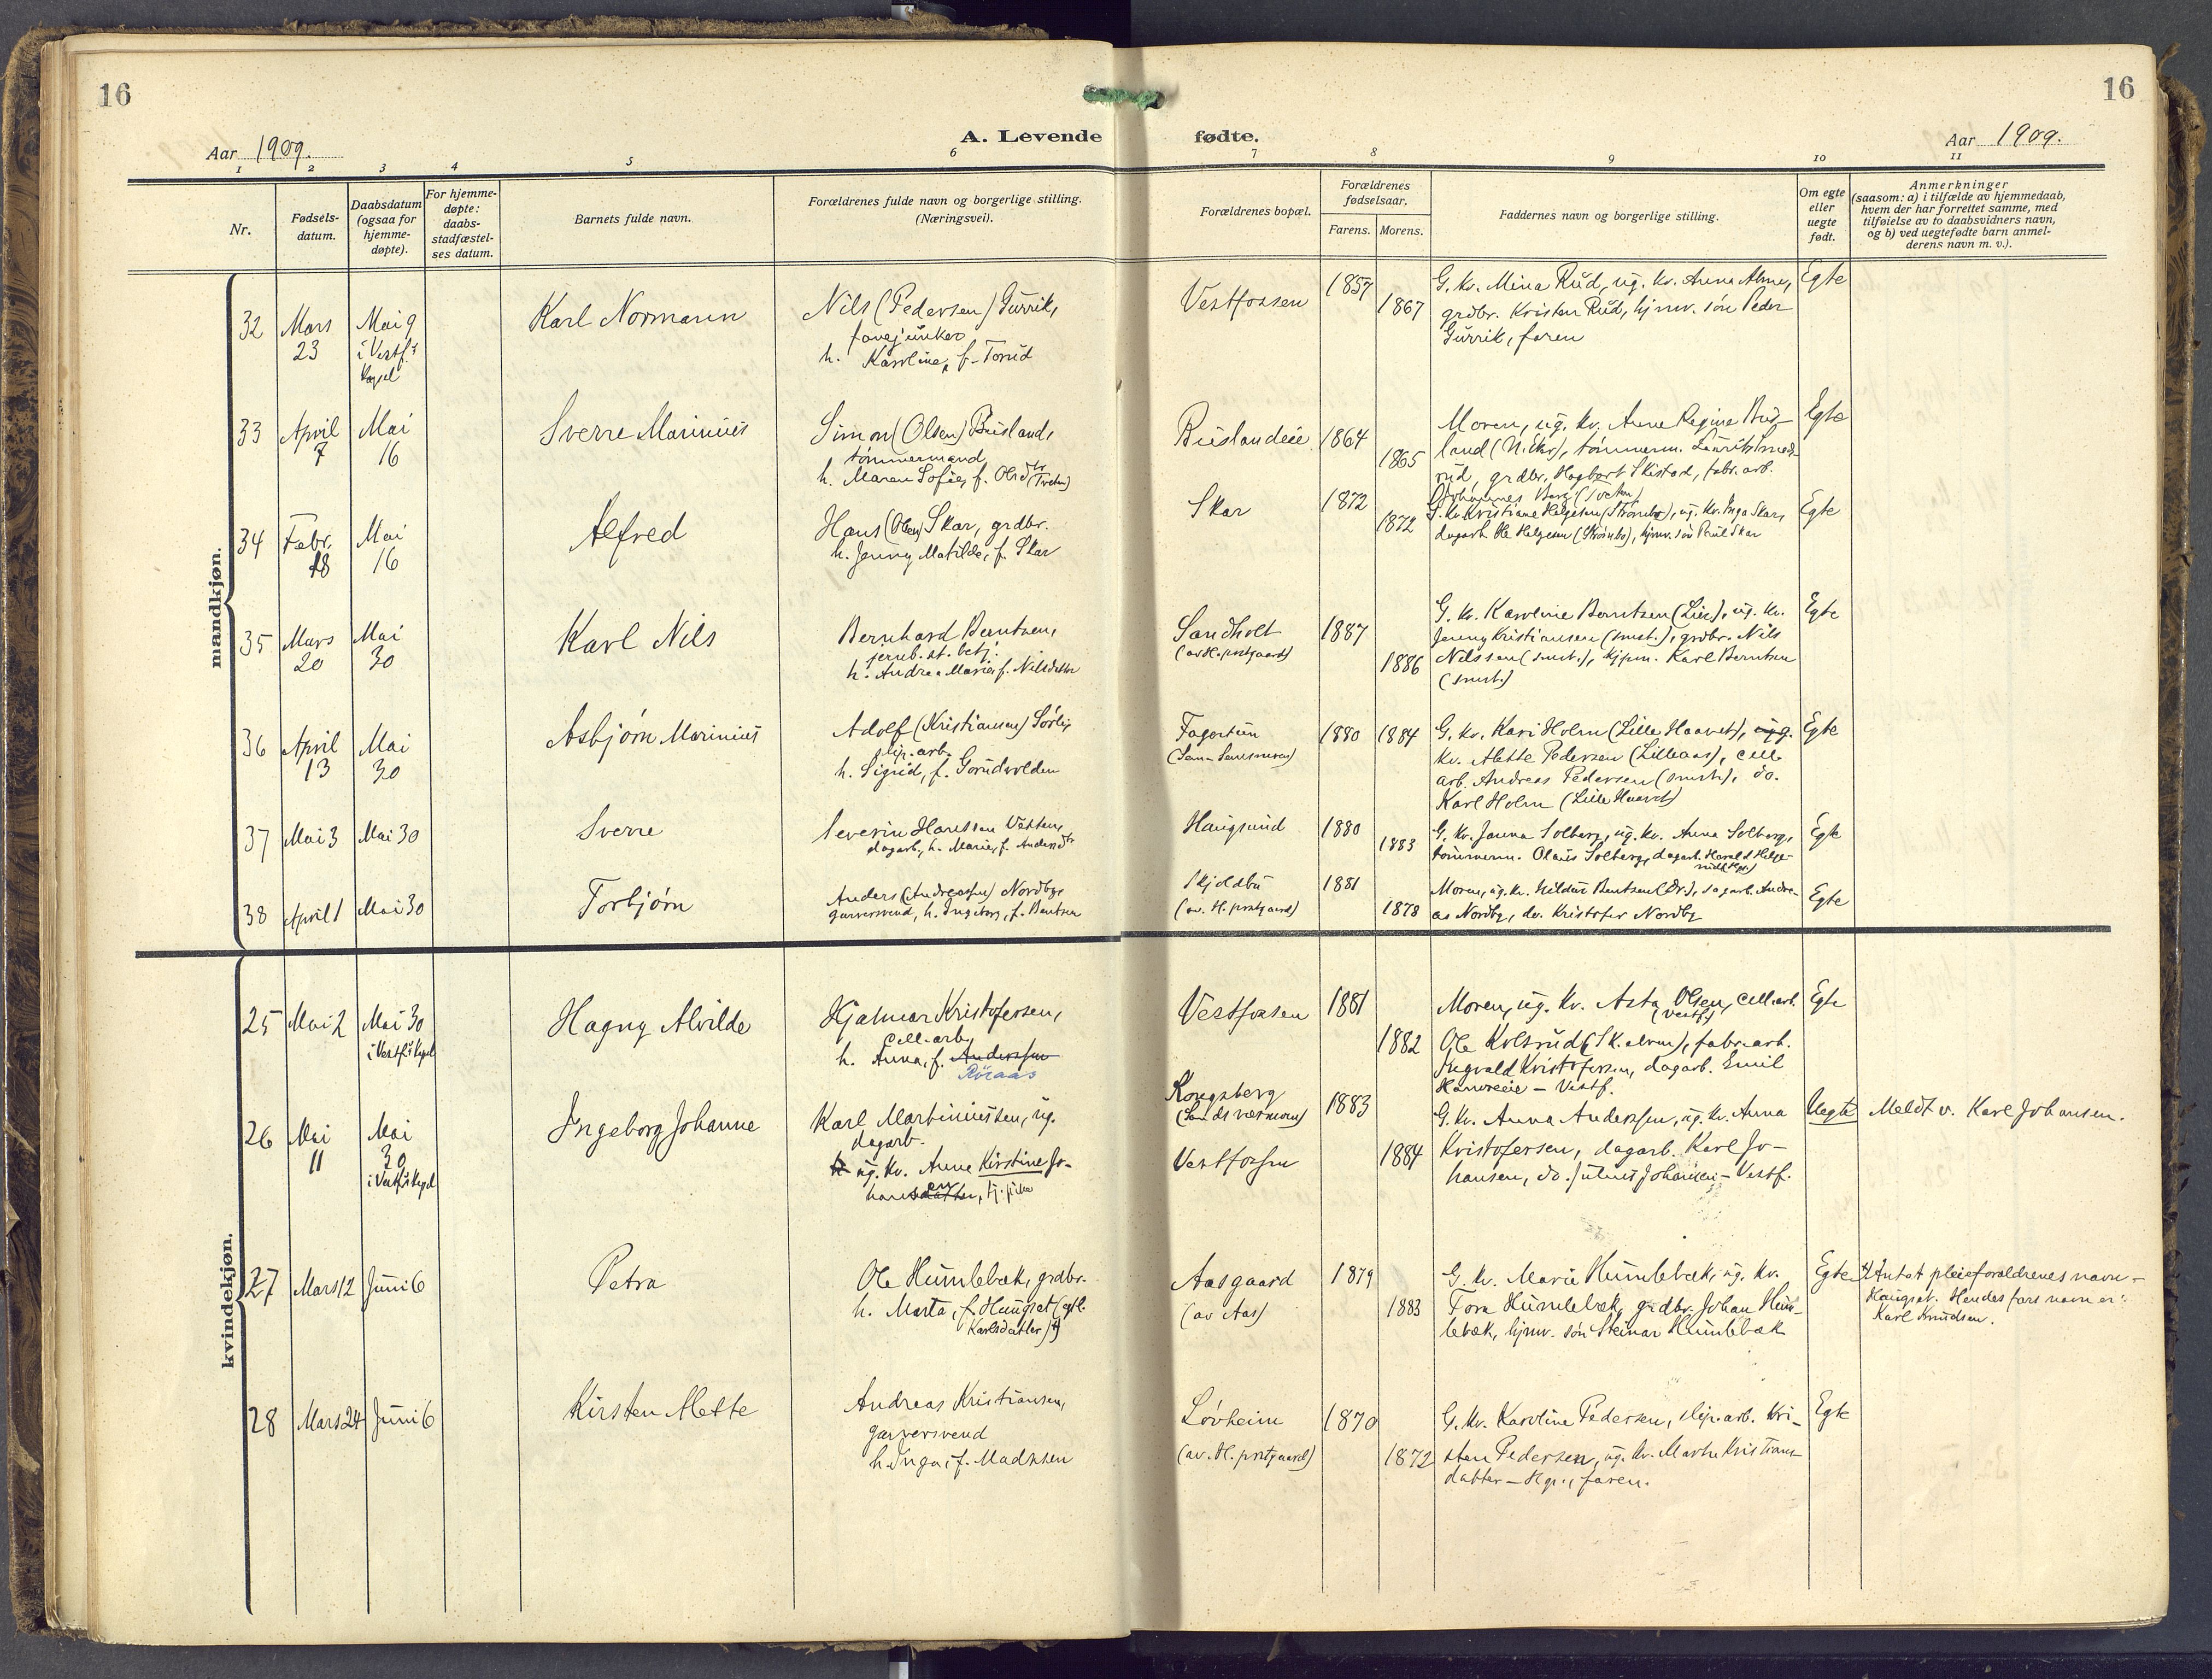 16
16
A. Levende fødte.
Aar 1909.
Aar 1909.
1 2 3 4 5 6 7 8 9 10 11
Nr.
Fødsels-
datum.
Daabsdatum
(ogsaa for
hjemme-
døpte).
For hjemme-
døpte:
daabs-
stadfæstel-
ses datum.
Barnets fulde navn.
Forældrenes fulde navn og borgerlige stilling.
(Næringsvei).
Forældrenes bopæl.
Forældrenes
fødselsaar.
Farens. Morens.
Faddernes navn og borgerlige stilling.
Om egte
eller
uegte
født.
Anmerkninger
(saasom: a) i tilfælde av hjemmedaab,
hvem der har forrettet samme, med
tilføielse av to daabsvidners navn,
og b) ved uegtefødte barn anmel-
derens navn m. v.).
mandkjøn.
32
Mars
23
Mai 9
i Vestf.s
Kapel
Karl Normann
Nils (Pedersen) Gurrik,
h. Karoline, f.
Vestfossen
1857
1867
G. kv. Mina Rud, ug. kv. Anna
grdbr. Kristen Rud, hjmv. søn Peder
Gurrik, faren
Egte
33
April
7
Mai
16
Sverre Marinius
Simon (Olsen) Busland,
tømmermand
h. Maren Sofie, f. Olsdtr
Buslandeie
1864
1865
Moren, ug. kv. Anne Regine Bus-
land (N. Eker), tømmerm. Laurits Smeds-
rud, grdbr. Hagbart Skistad, fabr. arb.
Johannes Berg
Egte
34
Febr.
18
Mai
16
Alfred
Hans (Olsen) Skar, grdbr.
h. Jenny Matilde, f. Skar
Skar
1872
1872
G. kv. Kristiane Helgesen (Strømbo), ug. kv. Inga Skar,
dagarb. Ole Helgesen (Strømbo), hjmv. søn Paul Skar
Egte
35
Mars
20
Mai
30
Karl Nils
Bernhard Berntsen,
jernb. st. betj.
h. Andrea Marie, f. Nilsdatter
Sandholt
(av H. prstgaard)
1887
1886
G. kv. Karoline Berntsen (Lier), ug. kv.
Jenny Kristiansen (smst.), grdbr. Nils
Nilssen (smst.), kjpm. Karl Berntsen
(smst.)
Egte
36
April
13
Mai
30
Asbjørn Marinius
Adolf (Kristiansen) Sørli,
slip. arb.
h. Sigrid, f. Gorudvolden
Fagertun
1880
1884
G. kv. Kari Holm (Lille Haavet), ug.
kv. Alette Pedersen (Lilleaas), cell.
arb. Andreas Pedersen (smst.), do.
Karl Holm (Lille Haavet)
Egte
37
Mai 3
Mai 30
Sverre
Severin Hanssen
dagarb., h. Marie, f. Andersdtr
Haugsund
1880
1883
G. kv. Janna Solberg, ug. kv. Anna Solberg,
tømmerm. Olaus Solberg, dagarb. Harald Helge-
Egte
38
April 1
Mai 30
Torbjørn
Anders (Andreassen) Nordby,
garversvend, h. Ingeborg, f. Bentsen
Skjoldbu
(av H. prstgaard)
1881
1878
Moren, ug. kv. Hildur Bentsen (Dr.), dagarb. Andre-
as Nordby, do. Kristofer Nordby
Egte
kvindekjøn.
25
Mai 2
Mai 30
i Vestf.s Kapel
Hagny Alvilde
Hjalmar Kristofersen,
cell. arb.
h. Anna, f. Anderssen
Røraas
Vestfossen
1881
1882
Moren, ug. kv. Asta Olsen, cell. arb.
(Vestf.)
Ole Kolsrud (Sk. elven), fabr. arb.
Ingvald Kristoffersen, dagarb. Emil
Hammereie – Vestf.
Egte
26
Mai
11
Mai
30
i Vestf.s Kapel
Ingeborg Johanne
Karl Martiniussen, ug.
dagarb.
ug. kv. Anne Kirstine Jo-
hansen, tj. pike
Kongsberg
Vestfossen
1883
1884
G. kv. Anna Anderssen, ug. kv. Anna
Kristofersen, dagarb. Karl Jo-
hansen, do. Julius Johansen – Vestf.
Uegte
Meldt v. Karl Johansen.
27
Mars 12
Juni 6
Petra
Ole Humlebæk, grdbr.
h. Marta, f. Haugset (egtl.
Karlsdatter)
Aasgaard
(av Aas)
1879
1883
G. kv. Marie Humlebæk, ug. kv.
Tora Humlebæk, grdbr. Johan Hum-
lebæk, hjmv. søn Steinar Humlebæk
Egte
Antat pleieforældrenes navn –
Haugset. Hendes fars navn er:
Karl Knudsen.
28
Mars 24
Juni 6
Kirsten Alette
Andreas Kristiansen,
garversvend
h. Inga, f. Madssen
Løvheim
(av H. prstgaard)
1870
1872
G. kv. Karoline Pedersen, slip. arb. Kri-
sten Pedersen, ug. kv. Marthe Kristians-
datter – Hgs., faren.
Egte